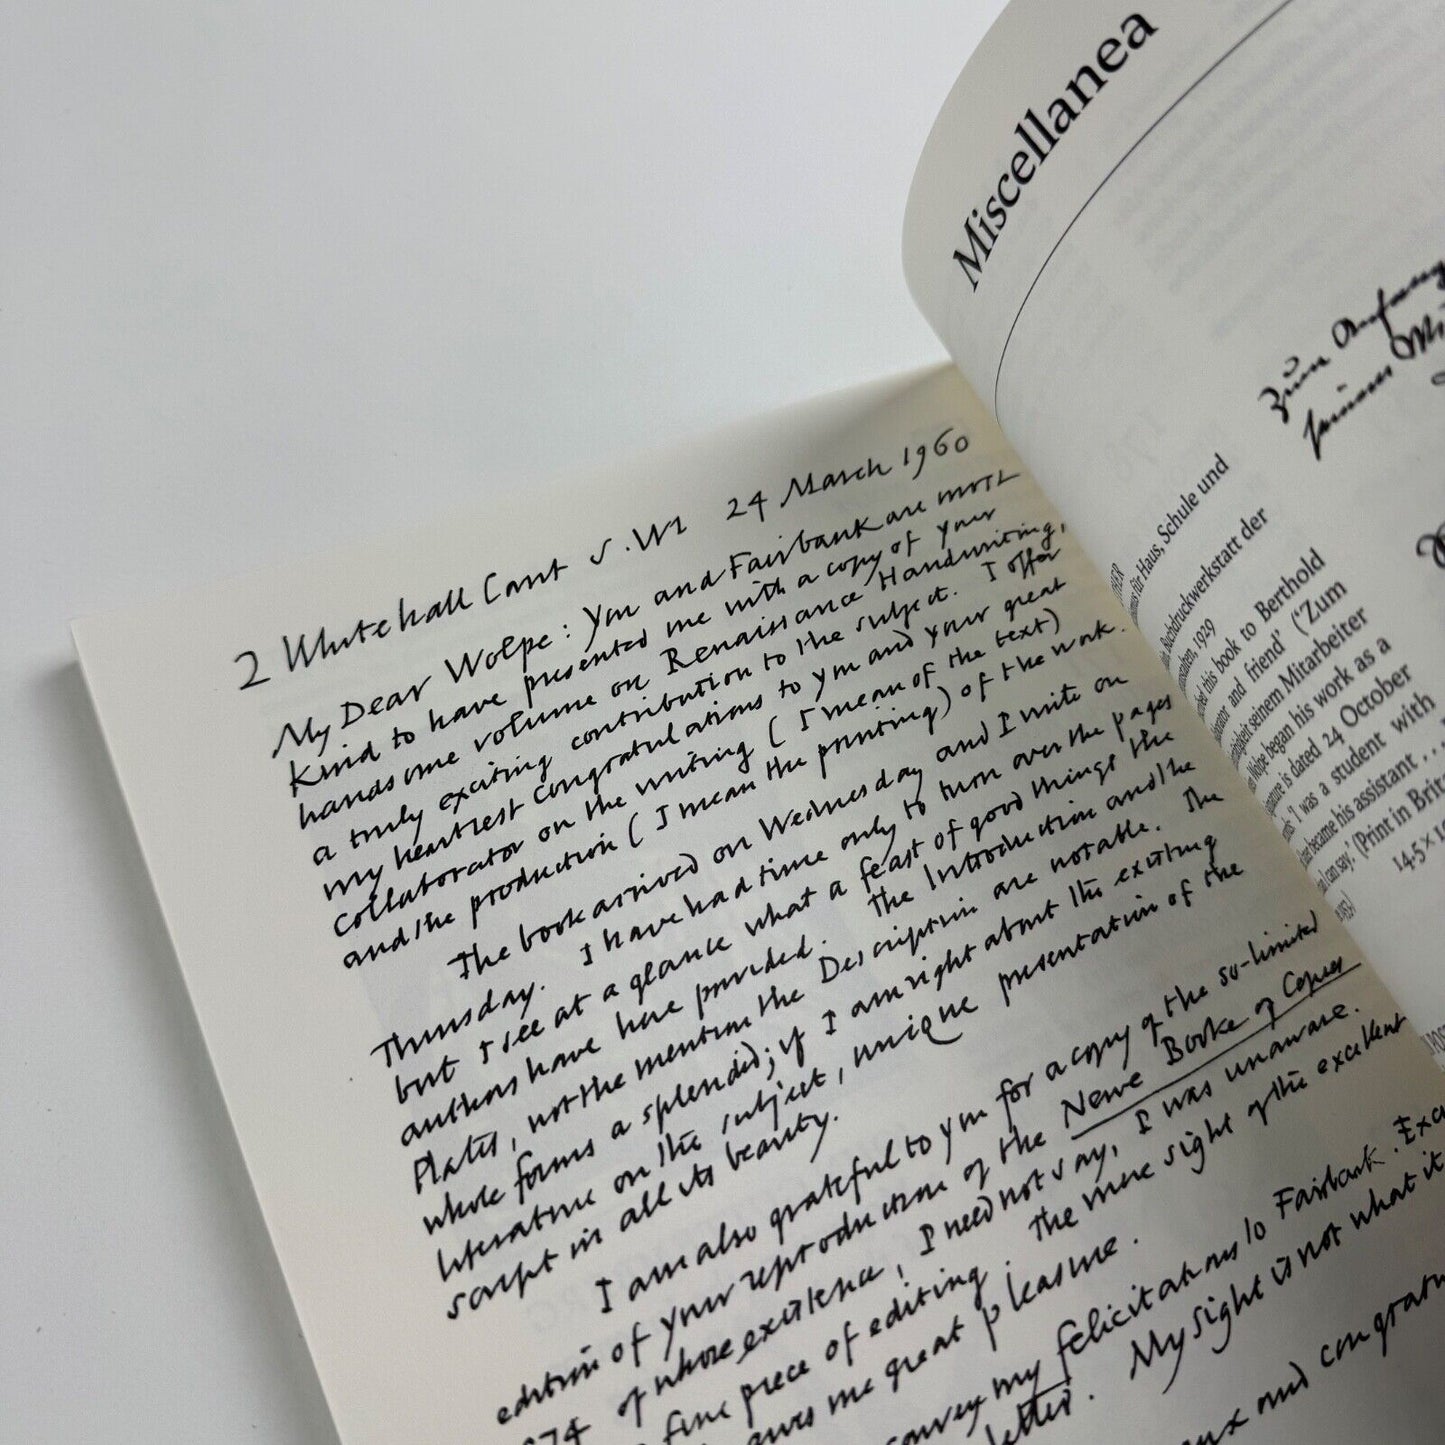 2 Whitehall Court S.W1 24 March 1960
My Dear Wolpe: You and Fairbank are most
kind to have presented me with a copy of your
handsome volume on Renaissance Handwriting,
a truly exciting contribution to the subject. I offer
my heartiest congratulations to you and your great
collaborator on the writing (I mean of the text)
and the production (I mean the printing) of the work.
The book arrived on Wednesday and I write on
Thursday. I have had time only to turn over the pages
but I see at a glance what a feast of good things the
authors have here provided. The Introduction and the
Plates, not the mention the Description are notable. The
whole forms a splendid; if I am right about the existing
literature on the subject, unique presentation of the
script in all its beauty.
I am also grateful to you for a copy of the so-limited
edition of your reproduction of the Newe Booke of Copies
574 of whose existence, I need not say, I was unaware.
fine piece of editing. The mere sight of the excellent
me great pleasure.
convey my felicitations to Fairbank.
letter. My sight is not what it
and
Miscellanea
Zum Anfang
seiner
für Haus, Schule und
Buchdruckwerkstatt der
1929
this book to Berthold
and friend' ('Zum
seinem Mitarbeiter
Wolpe began his work as a
is dated 24 October
'I was a student with
became his assistant ...
can say.' (Print in Brit
14.5 ×